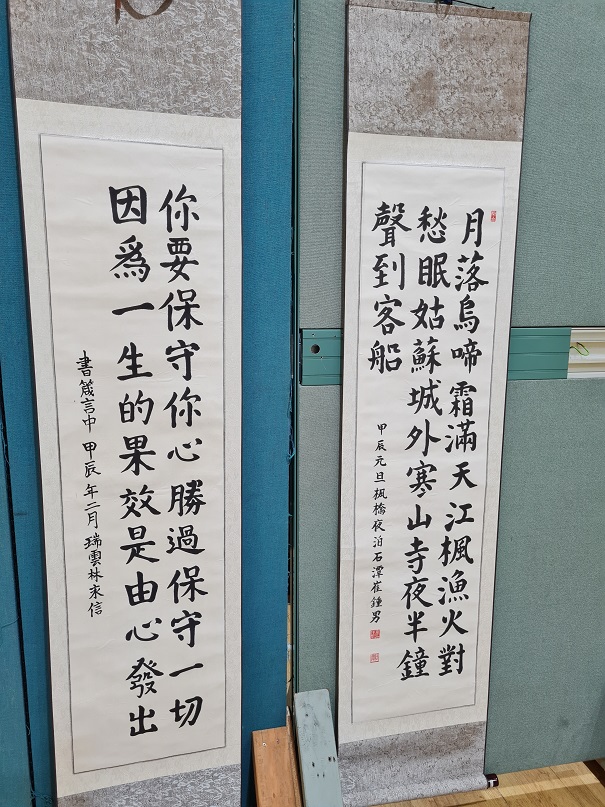 月落烏啼霜滿天江楓漁火對
愁眠姑蘇城外寒山寺夜半鐘
聲到客船
甲辰元旦楓橋夜泊石潭崔鍾男
你要保守你心勝過保守一切
因爲一生的果效是由心發出
書箴言中 甲辰年二月 瑞雲林求信